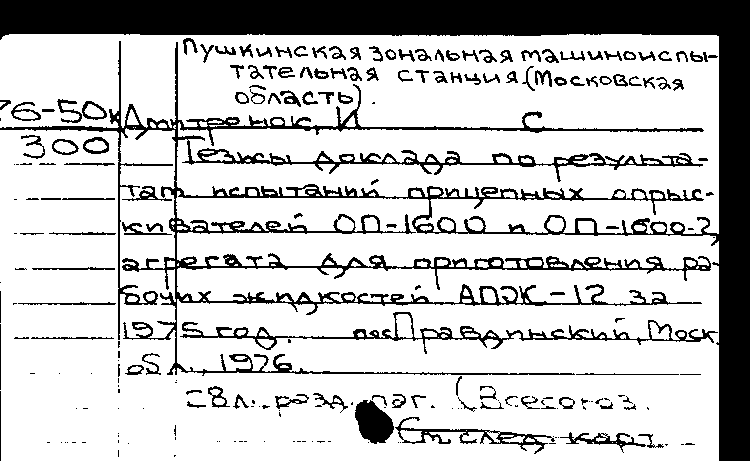 Пушкинская зональная машиноиспы-
тательная станция (Московская
область).
76-50к Дмитренок, И С
300 Тезисы доклада по результа-
там испытаний прицепных опрыс-
кивателей ОП-1600 и ОП-1600-2,
агрегата для приготовления ра-
бочих жидкостей АПЖ-12 за
1975 год. пос Правдинский, Моск.
обл., 1976.
с8л. разд. паг. (Всесоюз.
См след. карт.